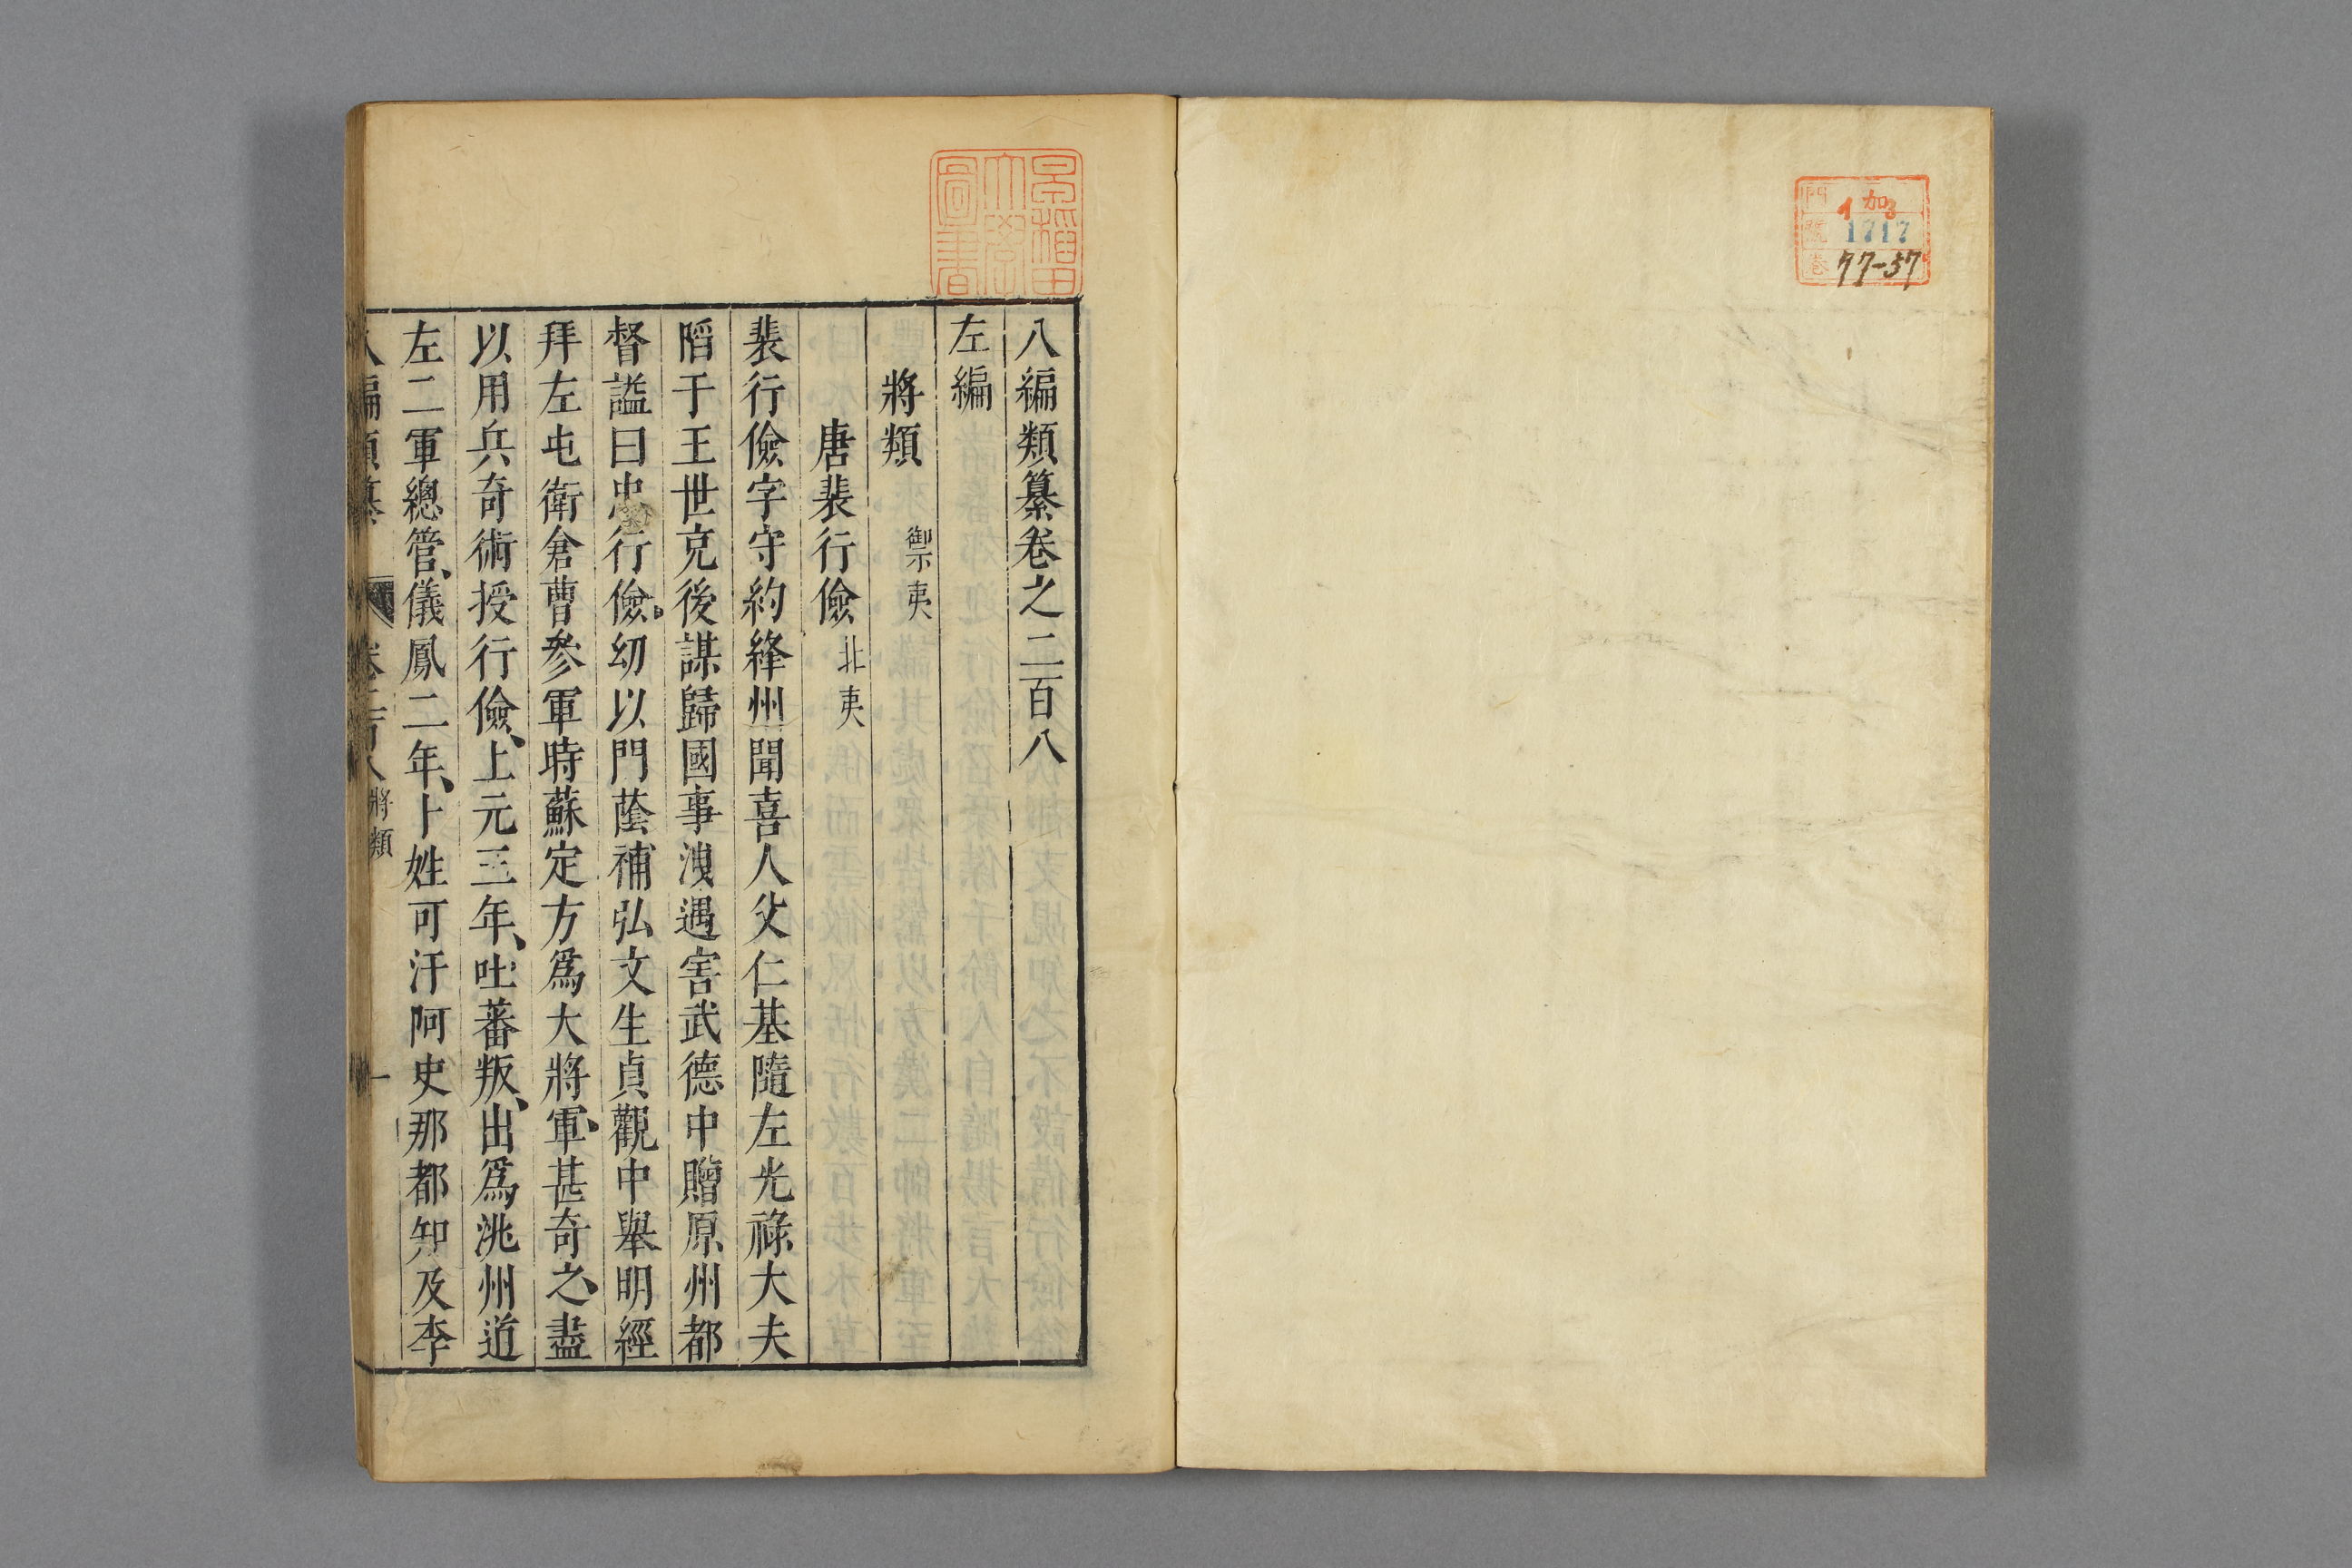 門 イ 加3
號 1717
卷 77-57
早稻田大學圖書
八編類纂卷之二百八
左編
將類 御夷
唐裴行儉 北夷
裴行儉字守約絳州聞喜人父仁基隨左光祿大夫
䧟于王世充後謀歸國事洩遇害武德中贈原州都
督謚曰忠行儉幼以門蔭補弘文生貞觀中舉明經
拜左屯衛倉曹參軍時蘇定方爲大將軍、甚奇之、盡
以用兵奇術授行儉、上元三年、吐蕃叛、出爲洮州道
左二軍總管、儀鳳二年、十姓可汗阿史那都知及李
八編類纂 卷二百八 將類 一